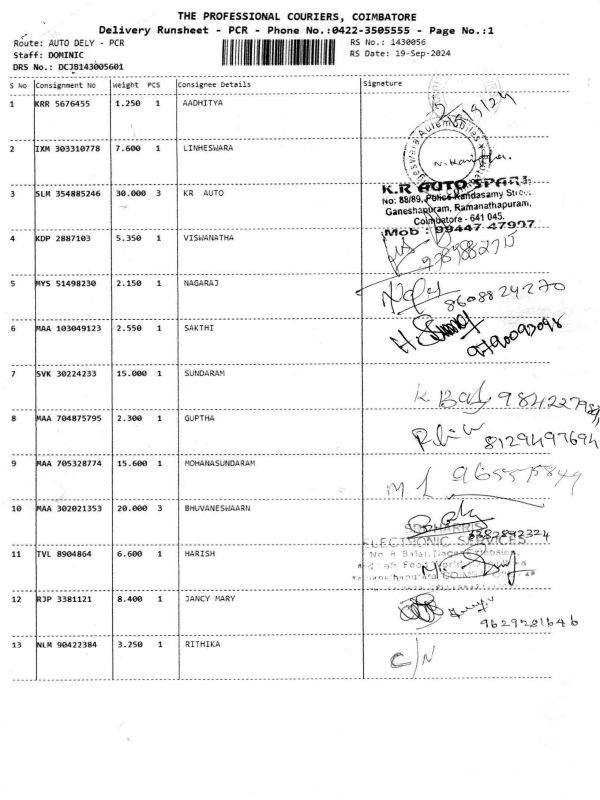 THE PROFESSIONAL COURIERS, COIMBATORE
Delivery Runsheet - PCR - Phone No.:0422-3505555 - Page No.:1
Route: AUTO DELY - PCR
RS No.: 1430056
Staff: DOMINIC
RS Date: 19-Sep-2024
DRS No.: DCJB143005601
S No Consignment No Weight PCS Consignee Details Signature
1 KRR 5676455 1.250 1 AADHITYA
2 IXM 303310778 7.600 1 LINHESWARA
3 SLM 354885246 30.000 3 KR AUTO
K.R AUTO SPARES
No: 88/89, Police Kandasamy Street
Ganeshapuram, Ramanathapuram,
Coimbatore - 641 045.
Mob : 99447 47997
4 KDP 2887103 5.350 1 VISWANATHA
5 MYS 51498230 2.150 1 NAGARAJ
8608824270
6 MAA 103049123 2.550 1 SAKTHI
7 SVK 30224233 15.000 1 SUNDARAM
8 MAA 704875795 2.300 1 GUPTHA
8129497694
9 MAA 705328774 15.600 1 MOHANASUNDARAM
10 MAA 302021353 20.000 3 BHUVANESWAARN
ELECTRONIC SERVICES
11 TVL 8904864 6.600 1 HARISH
12 RJP 3381121 8.400 1 JANCY MARY
9629281646
13 NLM 90422384 3.250 1 RITHIKA
C/N